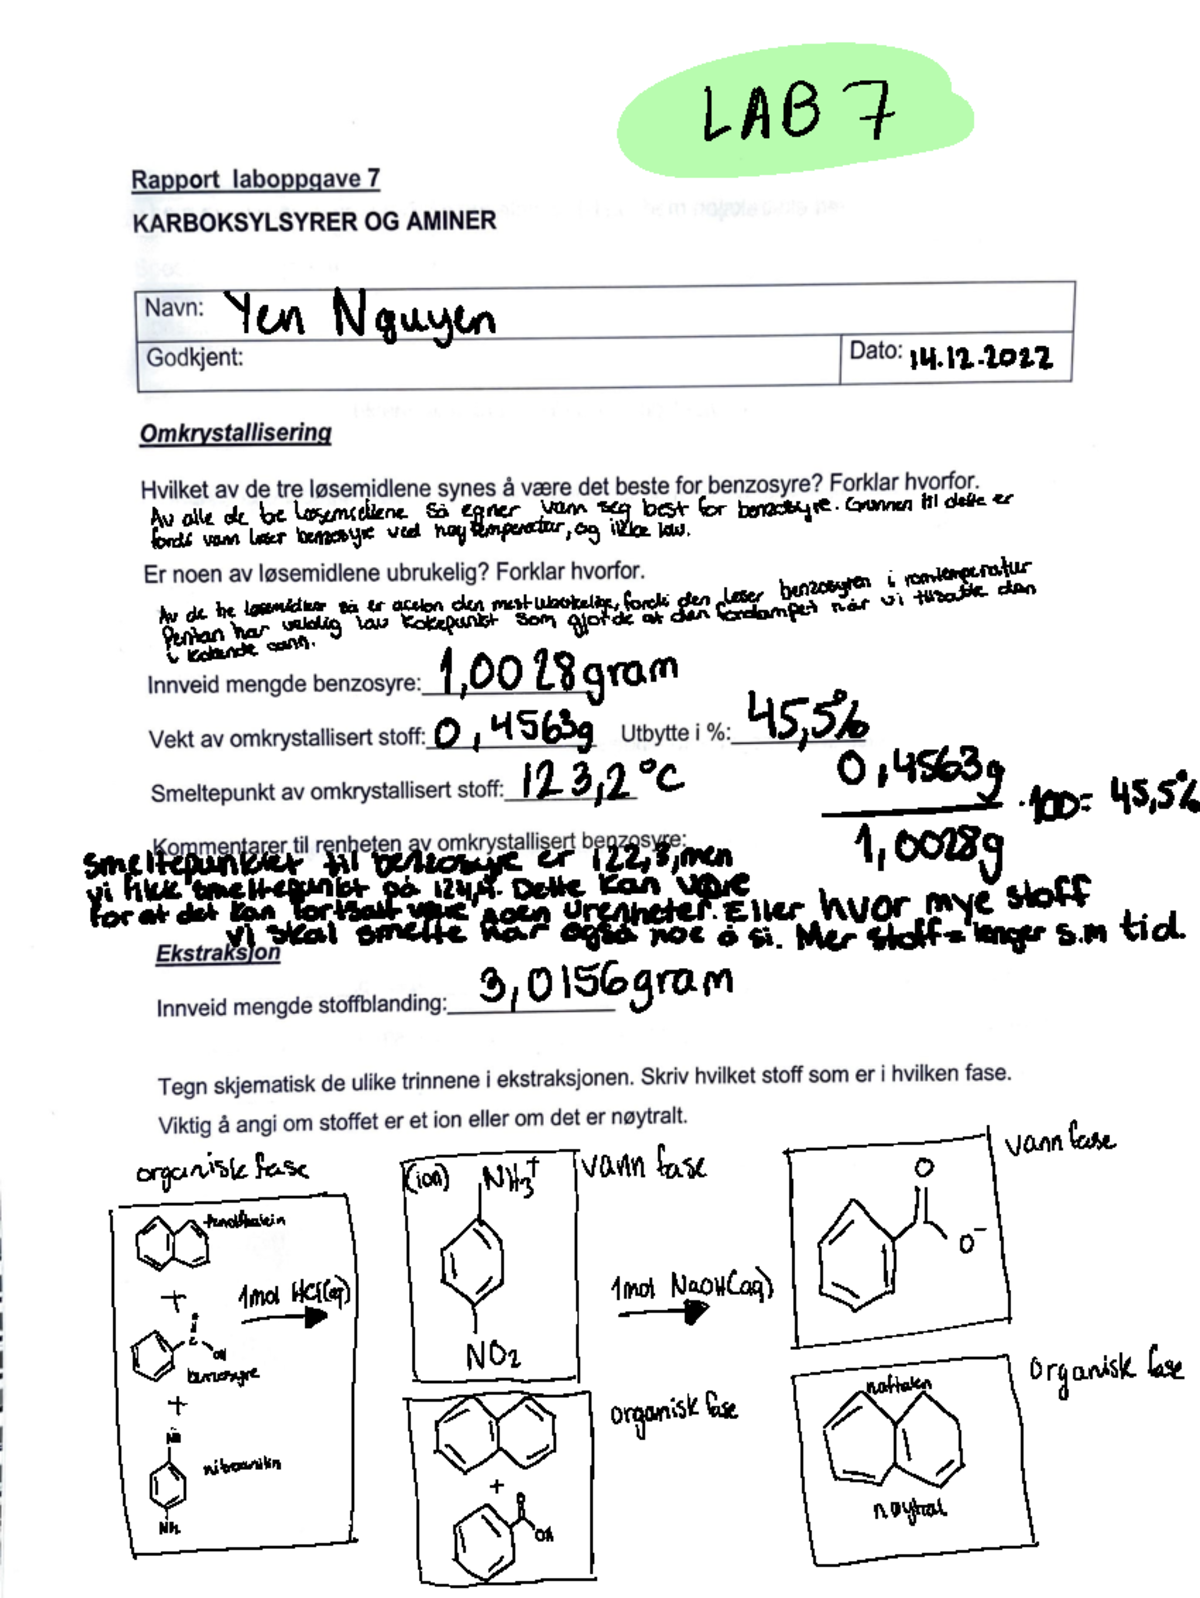 LAB 7
Rapport laboppgave 7
KARBOKSYLSYRER OG AMINER
Navn: Yen Nguyen
Godkjent:
Dato: 14.12.2022
Omkrystallisering
Hvilket av de tre løsemidlene synes å være det beste for benzosyre? Forklar hvorfor.
Av alle de tre løsemidlene så egner vann seg best for benzosyre. Grunnen til dette er
fordi vann løser benzosyre ved høy temperatur, og ikke lav.
Er noen av løsemidlene ubrukelig? Forklar hvorfor.
Av de tre løsemidler så er aceton den mest ubrukelige, fordi den løser benzosyren i romtemperatur
Pentan har veldig lav kokepunkt som gjorde at den fordampet når vi tilsatte den
i kokende vann.
Innveid mengde benzosyre: 1,0028 gram
Vekt av omkrystallisert stoff: 0,4563g Utbytte i %: 45,5%
Smeltepunkt av omkrystallisert stoff: 123,2°C
0,4563g
1,0028g
·100= 45,5%
Kommentarer til renheten av omkrystallisert benzosyre:
Smeltepunktet til benzosyre er 122,3, men
vi fikk smeltepunkt på Dette kan være
for at det kan fortsatt være noen urenheter. Eller hvor mye stoff
vi skal smelte har også noe å si. Mer stoff = lenger s.m tid.
Ekstraksjon
Innveid mengde stoffblanding: 3,0156 gram
Tegn skjematisk de ulike trinnene i ekstraksjonen. Skriv hvilket stoff som er i hvilken fase.
Viktig å angi om stoffet er et ion eller om det er nøytralt.
organisk fase
+
benzosyre
+
nitroanilin
NH₂
1mol HCl(aq)
(ion) NH₃⁺
NO₂
vann fase
+
O
OH
organisk fase
1mol NaOH(aq)
O
O⁻
vann fase
naftalen
nøytral
organisk fase